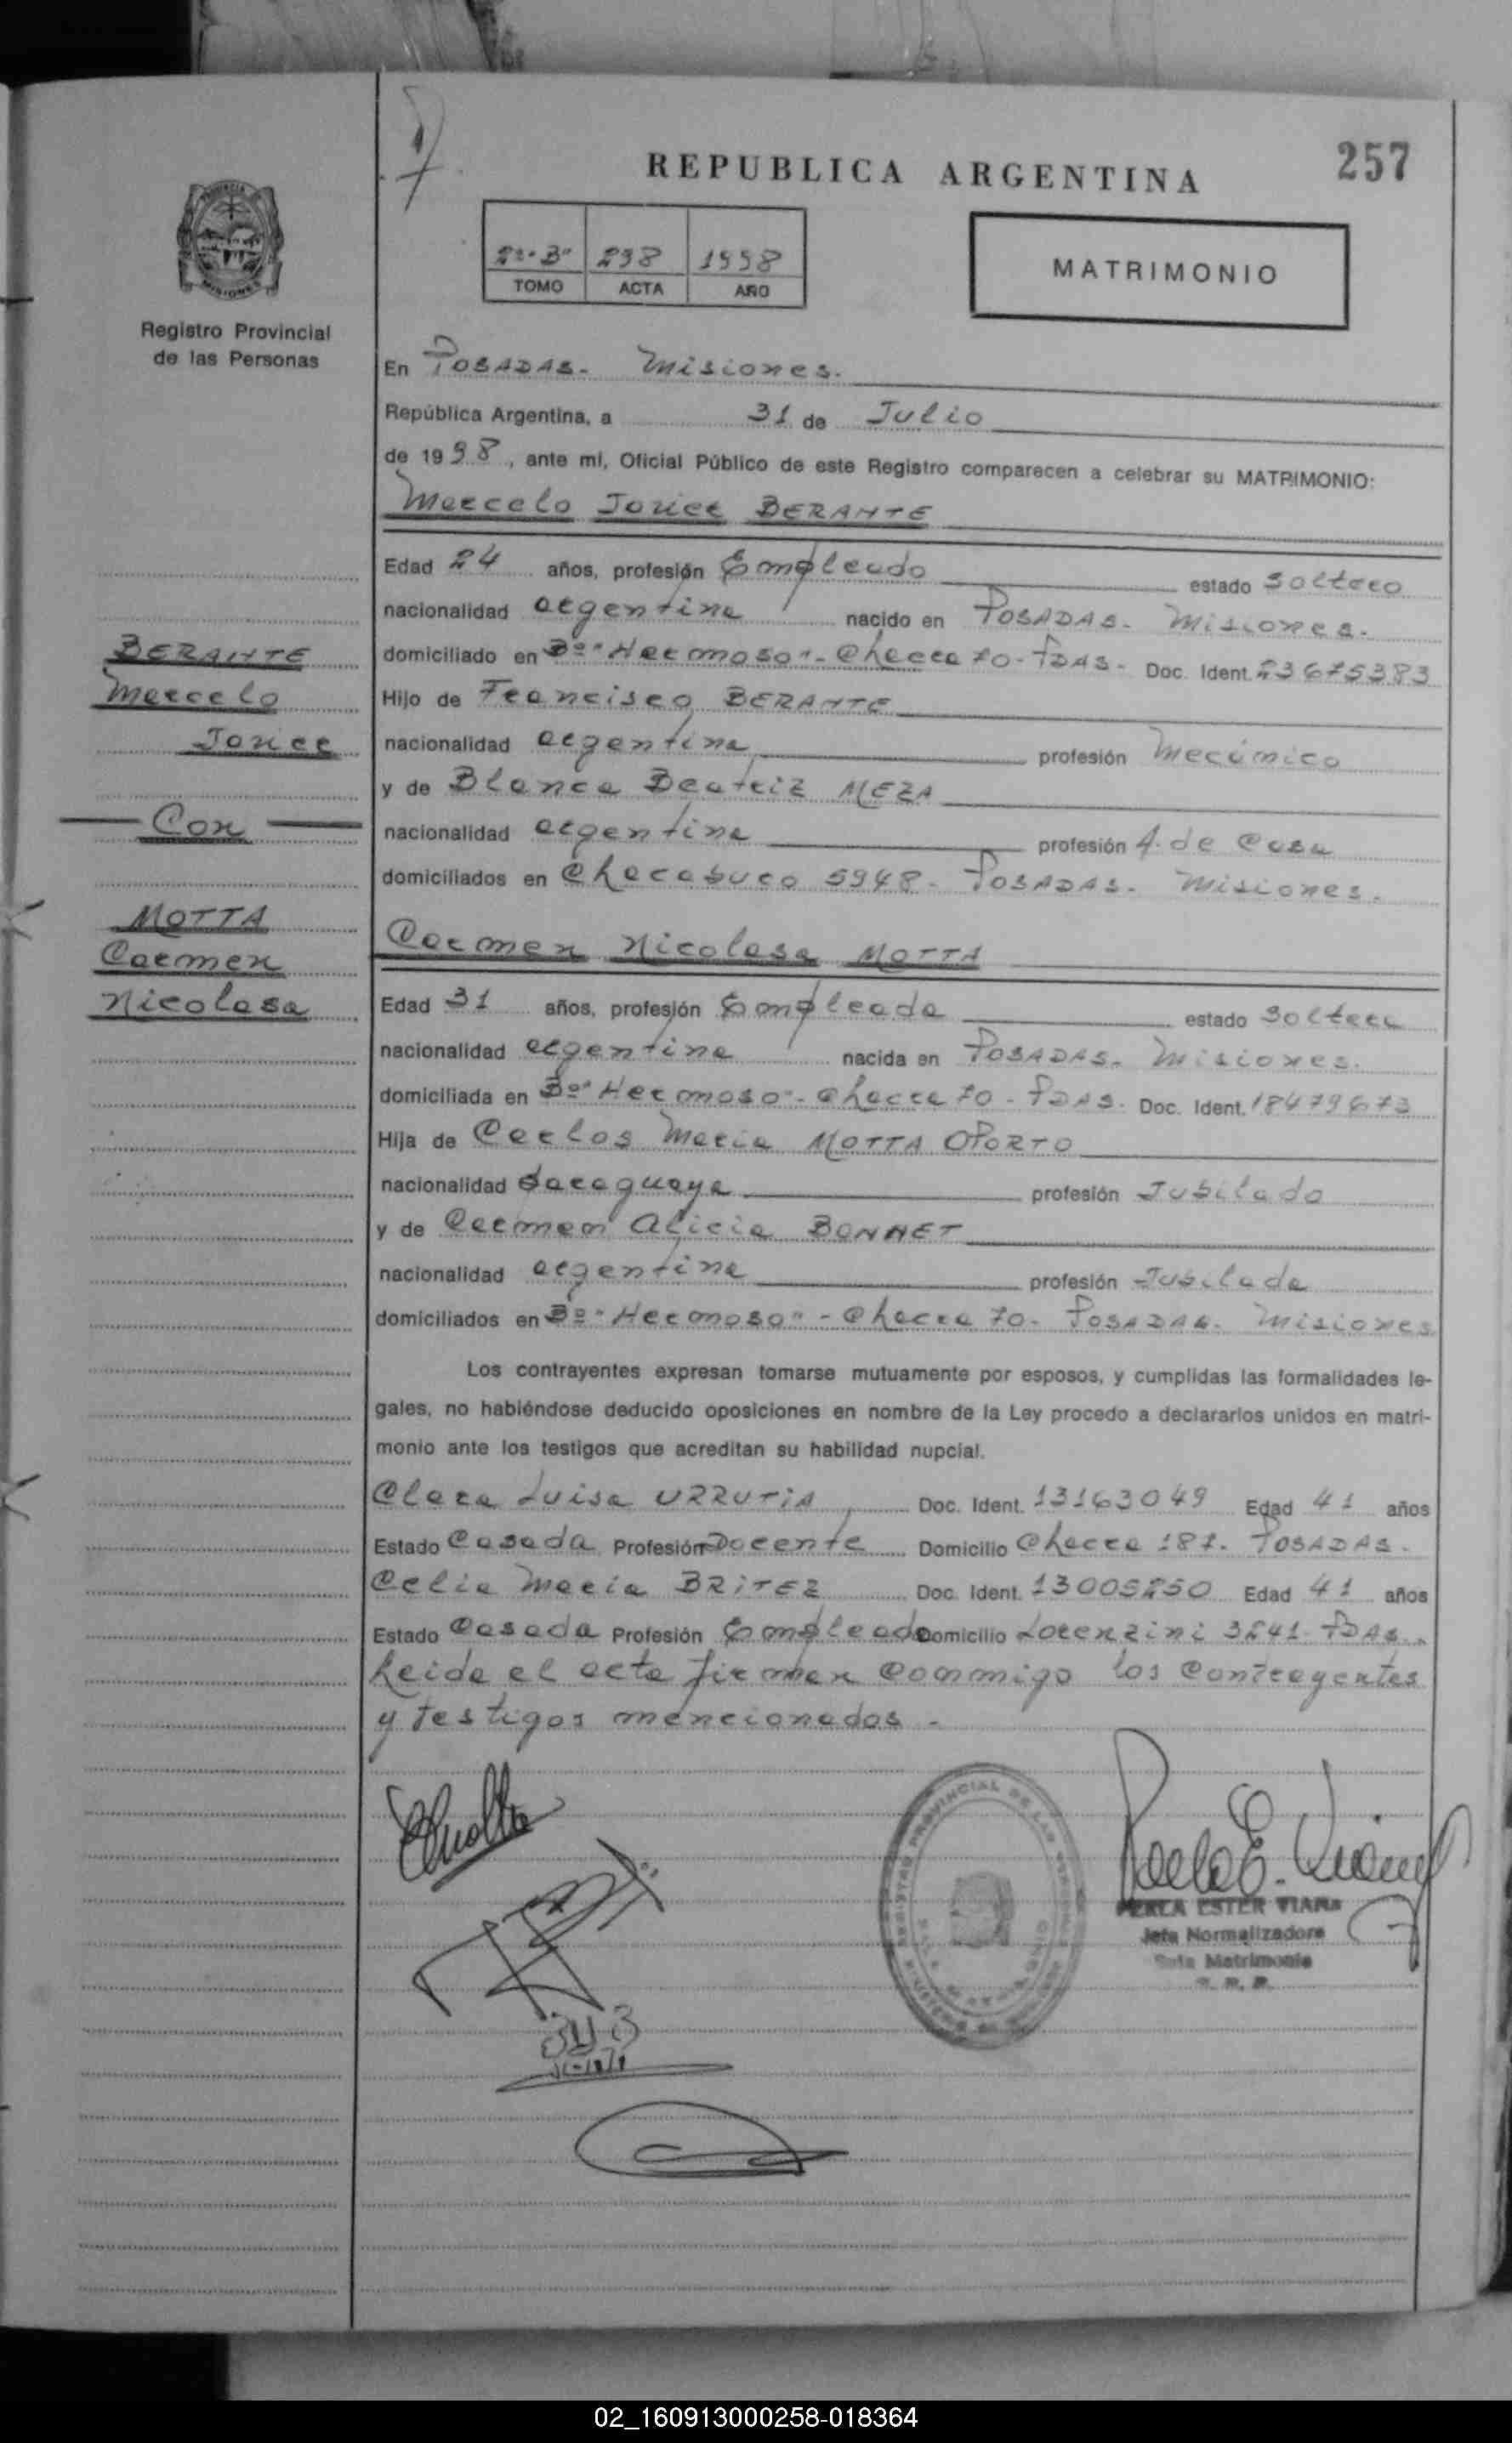 257
REPUBLICA ARGENTINA
2º·Bº 298 1998
TOMO ACTA AÑO
MATRIMONIO
MISIONES
Registro Provincial
de las Personas
En POSADAS- Misiones.
República Argentina, a 31 de Julio
de 1998, ante mí, Oficial Público de este Registro comparecen a celebrar su MATRIMONIO:
Marcelo Javier BERANTE
Edad 24 años, profesión Empleado estado soltero
nacionalidad argentina nacido en POSADAS- Misiones.
domiciliado en Bº "Hermoso"- Chacra 70- PDAS- Doc. Ident. 23675383
Hijo de Francisco BERANTE
nacionalidad argentina profesión Mecánico
y de Blanca Beatriz MEZA
nacionalidad argentina profesión A. de Casa
domiciliados en Chacabuco 5948- POSADAS- Misiones.
BERANTE
Marcelo
Javier
Con
MOTTA
Carmen
Nicolasa
Carmen Nicolasa MOTTA
Edad 31 años, profesión Empleada estado soltera
nacionalidad argentina nacida en POSADAS- Misiones.
domiciliada en Bº "Hermoso"- Chacra 70- PDAS- Doc. Ident. 18479673
Hija de Carlos María MOTTA OPORTO
nacionalidad paraguaya profesión Jubilado
y de Carmen Alicia BONNET
nacionalidad argentina profesión Jubilada
domiciliados en Bº "Hermoso"- Chacra 70- POSADAS- Misiones
Los contrayentes expresan tomarse mutuamente por esposos, y cumplidas las formalidades le-
gales, no habiéndose deducido oposiciones en nombre de la Ley procedo a declararlos unidos en matri-
monio ante los testigos que acreditan su habilidad nupcial.
Clara Luisa URRUTIA Doc. Ident. 13163049 Edad 41 años
Estado Casada Profesión Docente Domicilio Chacra 181- POSADAS-
Celia María BRITEZ Doc. Ident. 13005250 Edad 41 años
Estado Casada Profesión Empleada Domicilio Lorenzini 3641- PDAS.
Leida el acta firman conmigo los contrayentes
y testigos mencionados-
PERLA ESTER VIANA
Jefa Normalizadora
Matrimonio
02_160913000258-018364